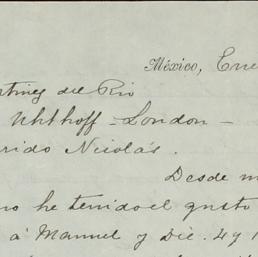 México, Ene
rtinez del Rio
Uhthoff - London -
rido Nicolás.
Desde m
no he tenido el gusto
á Manuel y Dic. 4 y 1